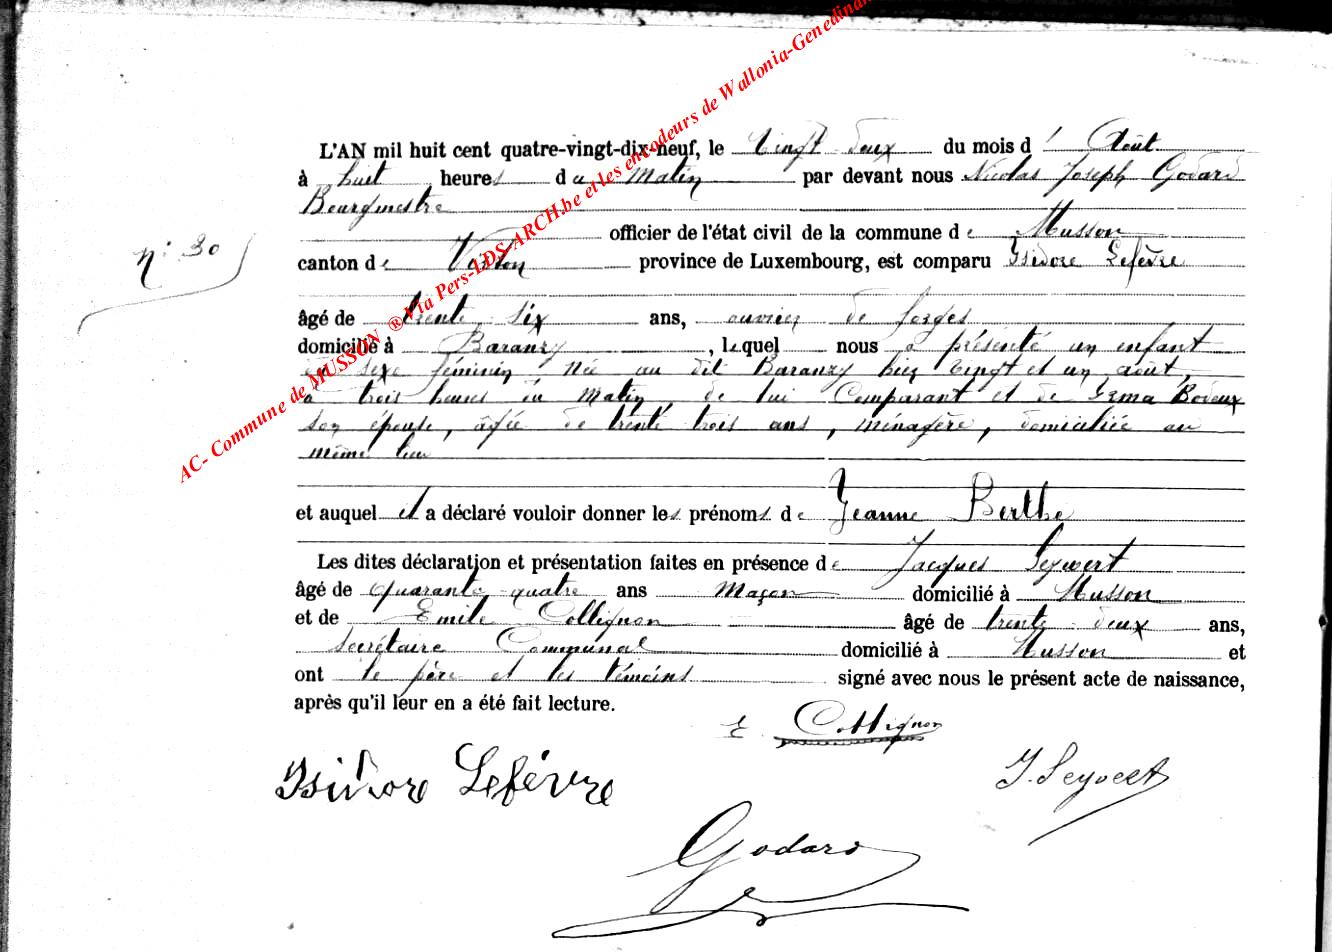 L'AN mil huit cent quatre-vingt-dix-neuf, le Vingt deux du mois d' Août
à huit heures du Matin par devant nous Nicolas Joseph Godard
Bourgmestre
officier de l'état civil de la commune de Musson
n° 30
canton de Virton province de Luxembourg, est comparu Isidore Lefèvre
âgé de trente six ans, ouvrier de forges
domicilié à Baranzy, lequel nous a présenté un enfant
du sexe féminin née au dit Baranzy hier vingt et un août,
à trois heures du Matin, de lui Comparant et de Irma Bodeux
son épouse, âgée de trente trois ans, ménagère, domiciliée au
même lieu
et auquel il a déclaré vouloir donner les prénoms de Jeanne Berthe
Les dites déclaration et présentation faites en présence de Jacques Seywert
âgé de quarante quatre ans Maçon domicilié à Musson
et de Emile Collignon âgé de trente deux ans,
secrétaire Communal domicilié à Musson et
ont le père et les témoins signé avec nous le présent acte de naissance,
après qu'il leur en a été fait lecture.
E. Collignon
Isidore Lefévre
J. Seyvert
Godard
AC- Commune de MUSSON ® Via Pers-LDS-ARCH.be et les encodeurs de Wallonia-Genedinan